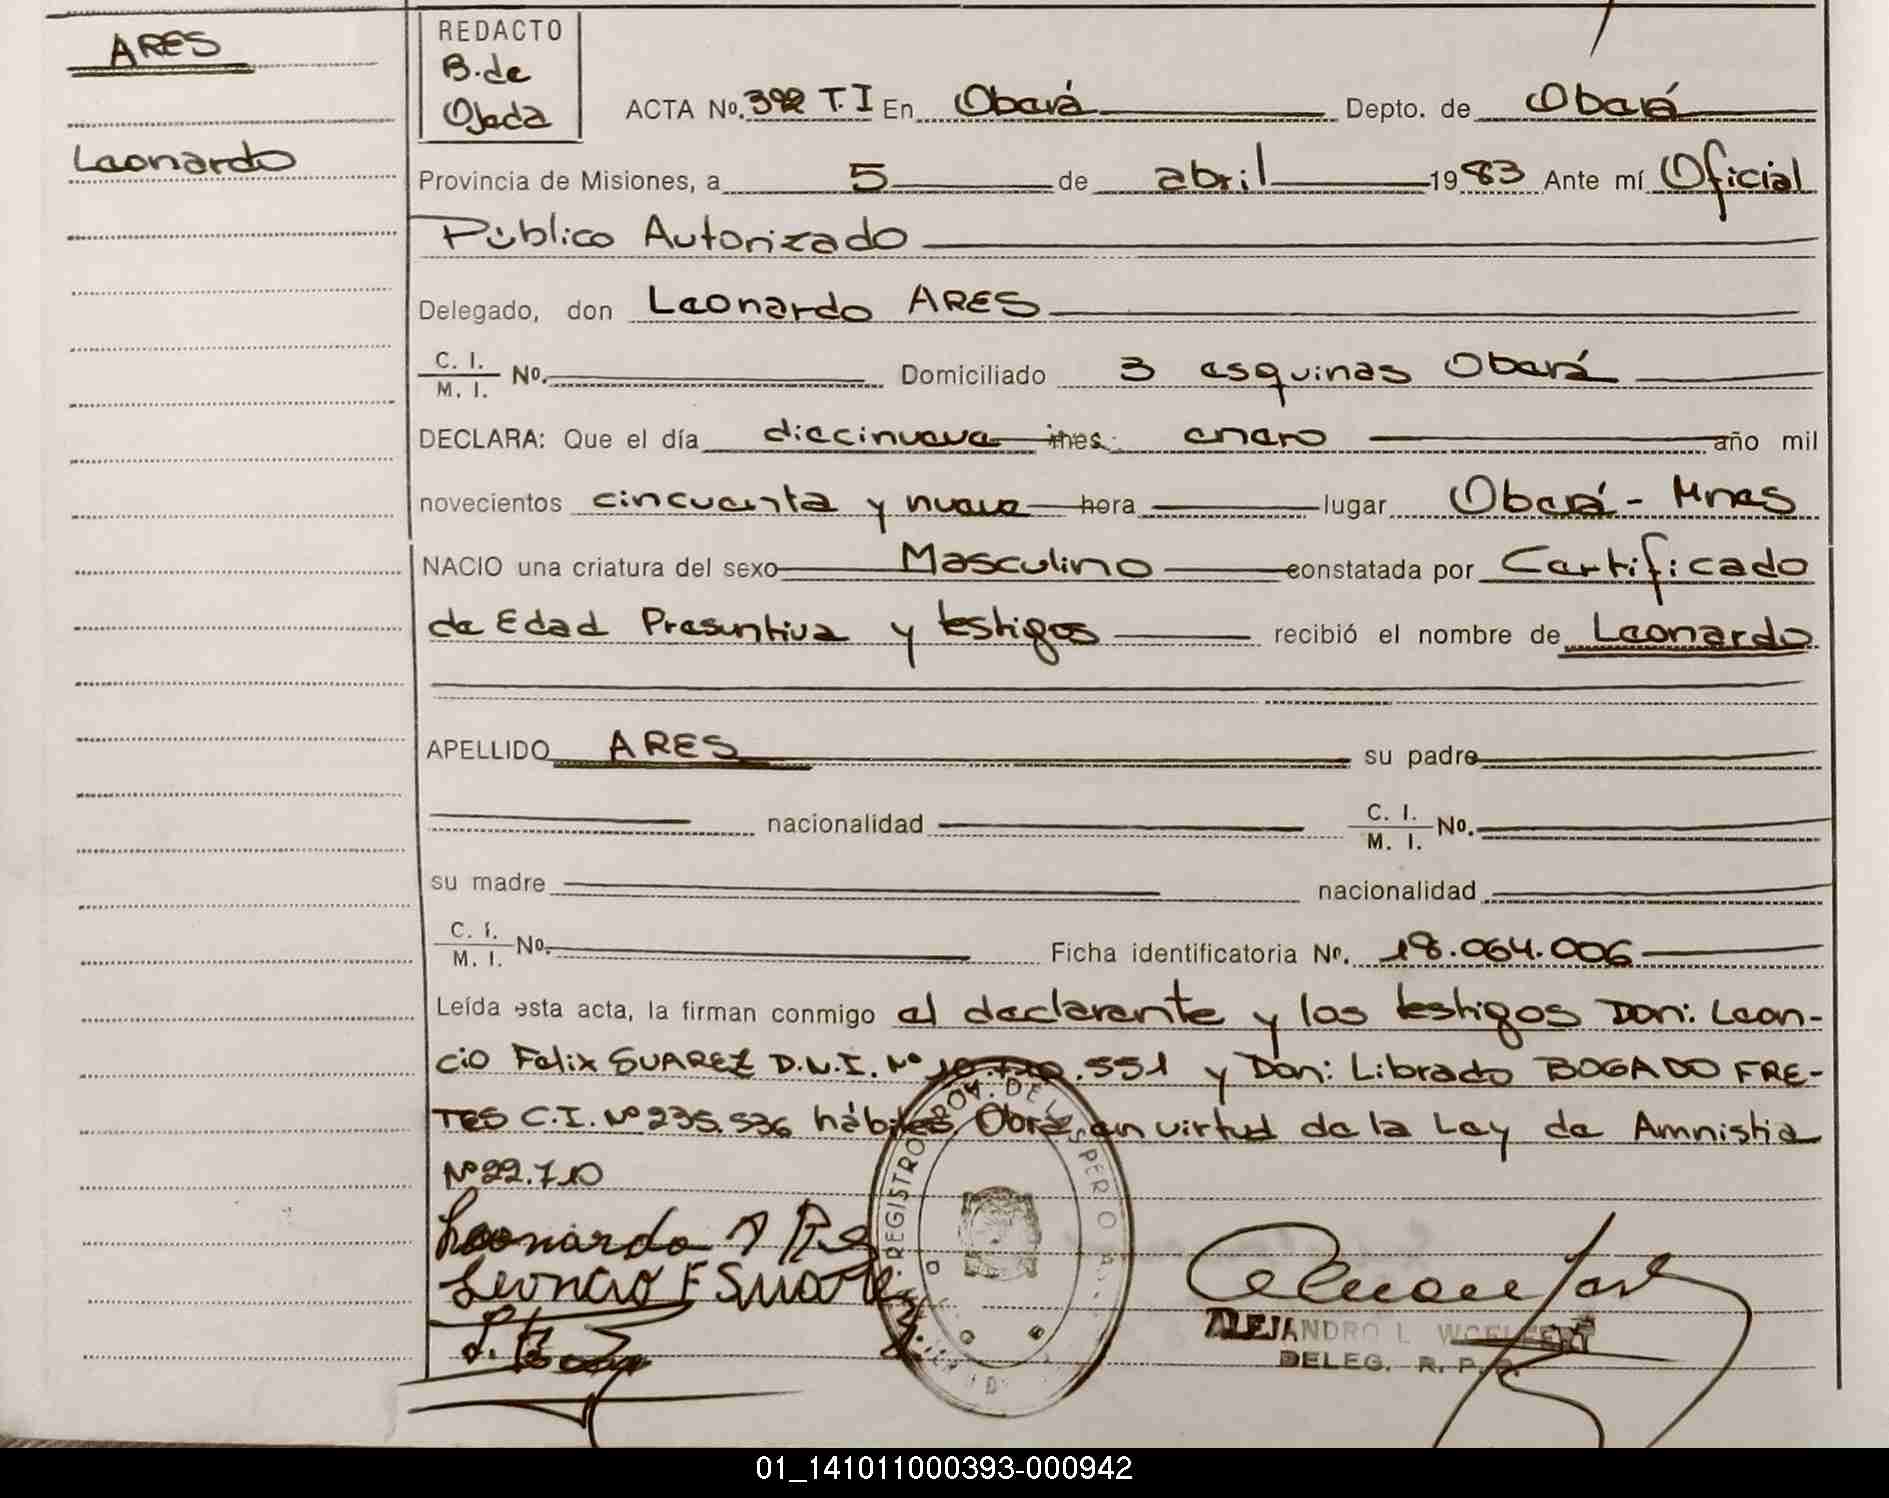 ARES
Leonardo
REDACTO
B. de
Ojeda
ACTA No. 392 T. I En Oberá Depto. de Oberá
Provincia de Misiones, a 5 de abril 1983 Ante mí Oficial
Público Autorizado
Delegado, don Leonardo ARES
C. I.
M. I. No. Domiciliado 3 esquinas Oberá
DECLARA: Que el día diecinueve mes enero año mil
novecientos cincuenta y nueve hora lugar Oberá - Mnes
NACIO una criatura del sexo Masculino constatada por Certificado
de Edad Presuntiva y testigos recibió el nombre de Leonardo
APELLIDO ARES su padre
nacionalidad C. I.
M. I. No.
su madre nacionalidad
C. I.
M. I. No. Ficha identificatoria No. 18.064.006
Leída esta acta, la firman conmigo el declarante y los testigos Don: Leon-
cio Felix SUAREZ D.N.I. Nº .551 y Don: Librado BOGADO FRE-
TES C.I. Nº 235.536 hábiles Obra en virtud de la Ley de Amnistia
Nº 22.710
Leonardo A Res
Leoncio F Suare
REGISTRO PROV. DE LAS PERSONAS
ALEJANDRO L WOELFERT
DELEG. R. P. P.
01_141011000393-000942